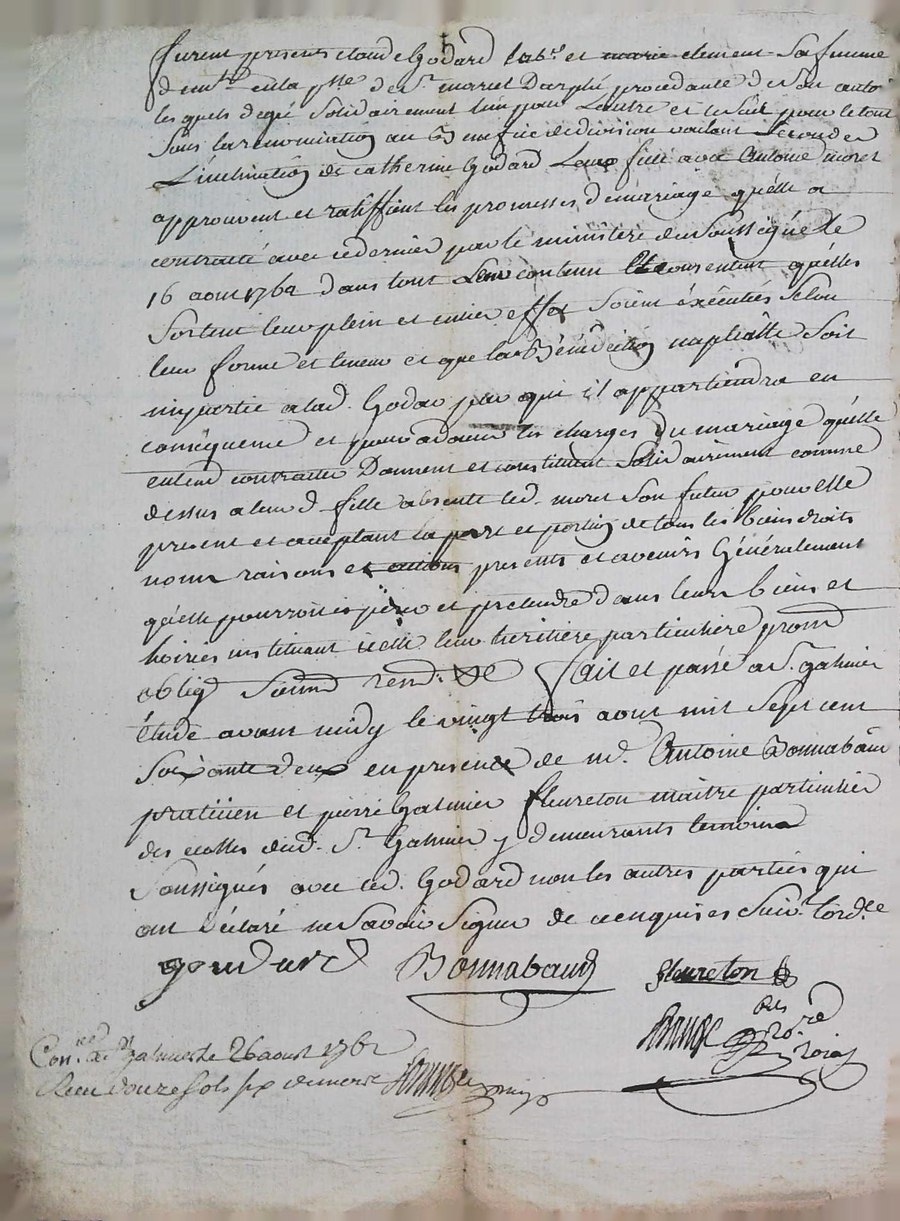 furent presents claude Godard lab.r et marie clement sa femme
demt. en la psse de St. marcel Darphé procedante de son autô
les quels de gré solidairement l'un pour l'autre et un seul pour le tout
sous la renonciation au Benefice de division voulant seconder
L'inclination de catherine Godard Leur fille avec Antoine moret
approuvent et ratiffient les promesses de mariage qu'elle a
contracté avec ce dernier par le ministere du soussigné le
16 aout 1762 dans tout Leur contenu consentent qu'elles
sortent leur plein et entier effet soient éxécutées selon
leur forme et teneur et que la Bénédiction nuptialle soit
impartie a lad. Godard par qui il appartiendra en
consequence et pour aider les charges du mariage qu'elle
entend contracter Donnent et constituent solidairement comme
dessus a leurd. fille absente led. moret son futur pour elle
present et acceptant la part et portion de tous les biens droits
noms raisons et actions presents et avenirs Généralement
qu'elle pourroit espérer et pretendre dans leurs biens et
hoiries instituant icelle leur heritiere particuliere prom
oblig rend. &e fait et passé a St. galmier
étude avant midy le vingt trois aout mil sept cent
soixante deux en presence de md. Antoine Bonnabaud
praticien et pierre Galmier fleureton maitre particulier
des ecolles dud. St. Galmier y demeurants temoins
soussignés avec led. Godard non les autres parties qui
ont déclaré ne savoir signer de ce enquises suiv. l'ord.ce
godard Bonnabaud fleureton
Con.lé a St galmier le 26 aout 1762
Reçu douze sols six deniers